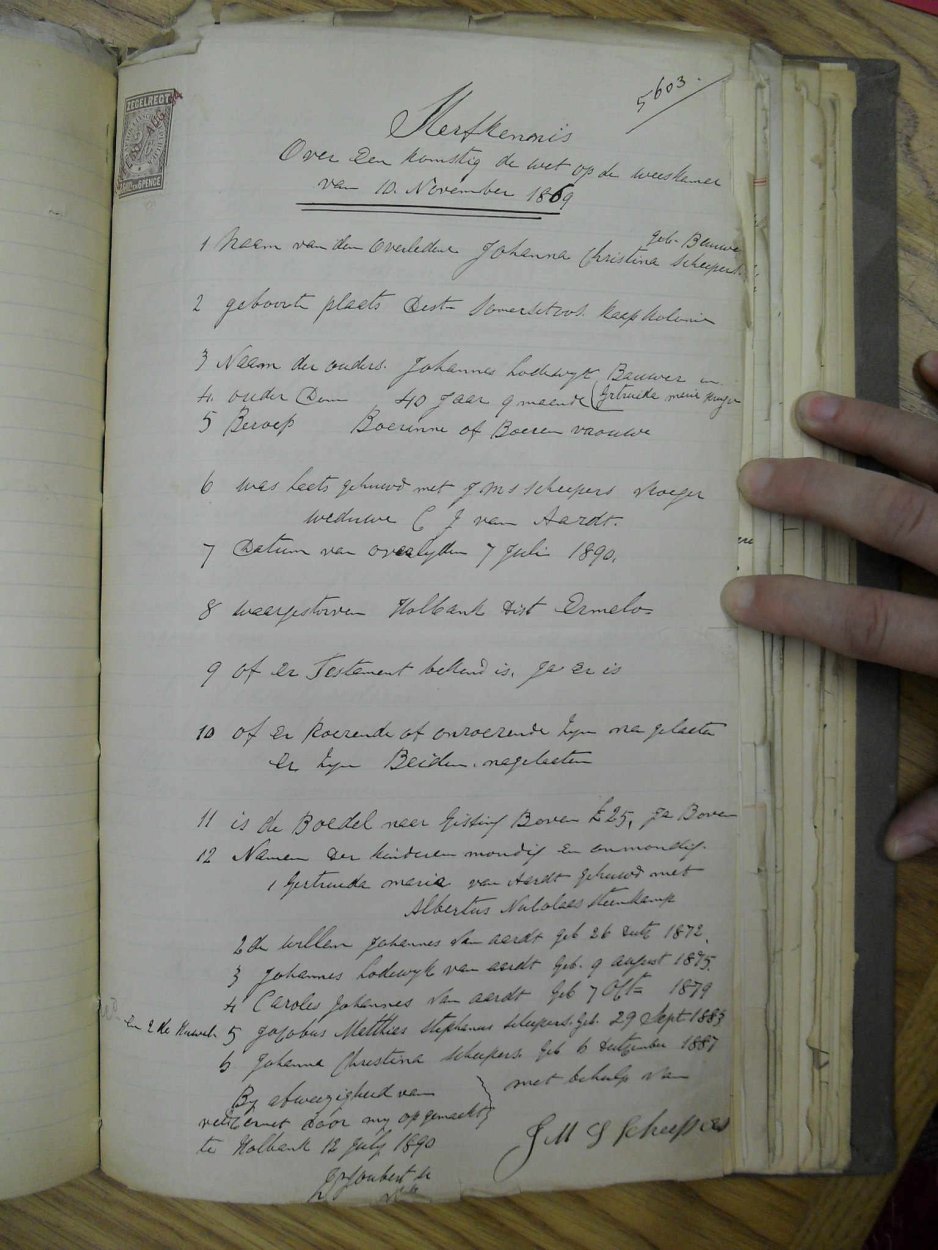 ZEGELREGT
PENCE
5603.
Sterfkennis
Over Een komstig de wet op de weeskamer
van 10. November 1869
geb. Bauwer
1 Naam van den Overledene Johanna Christina Scheepers
2 geboorte plaats Dist Somerset oost Kaap Kolonie
3 Naam der ouders. Johannes Lodewyk Bauwer en
4. ouder Dom 40 Jaar 9 maende Gertruida maria Kruger
5 Beroep Boerinne of Boeren vrouwe
6 was laets gehuwd met J M S Scheepers vroeger
weduwe C J van Aardt.
7 Datum van overlyden 7 Juli 1890.
8 waargestorven Holbank Dist Ermelo
9 of er Testament bekend is. Ja er is
10 of er Roerende of onroerende Zyn na gelaeten
er Zyn Beiden nagelaeten
11 is de Boedel naar Gissing Boven £25, Ja Boven
12 Namen der kinderen mondig en onmondig.
1 Gertruida maria van Aardt gehuwd met
Albertus Nicolaas Steenkamp
2de Willem Johannes van aardt geb 26 1872.
3 Johannes Lodewyk van aardt Geb. 9 august 1875.
4 Caroles Johannes van aardt Geb 7 Oct 1879
en 2de Huwel. 5 Jacobus Matthies Stephanus scheepers. geb. 29 Sept 1883
6 Johanna Christina scheepers. Geb 6 1887
By afwezigheid van
door my opgemaakt
met behulp van
te Holbank 12 July 1890
J M S Scheepers
Joubert